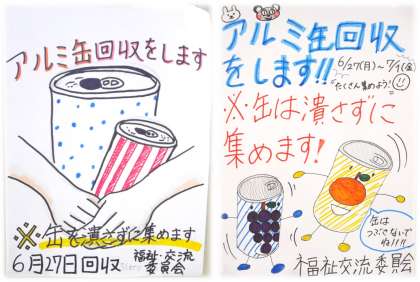 アルミ缶回収をします
※缶を潰さずに集めます
6月27日回収
福祉・交流
委員会
アルミ缶回収
をします!!
6/27(月)～7/1(金)
たくさん集めよう!
※缶は潰さずに
集めます!
缶は
つぶさないで
ね!!!
福祉交流委員会